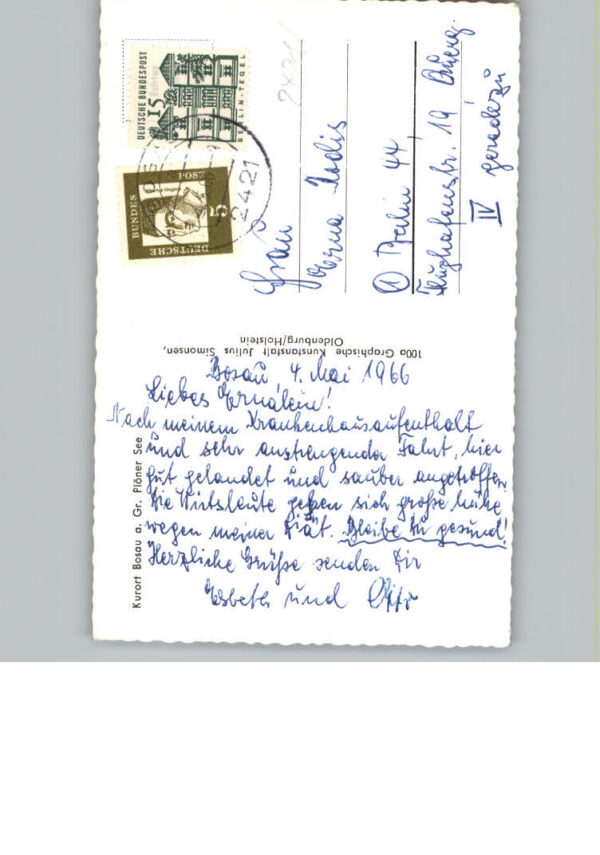 Bosau, 4. Mai 1966
Liebes Ernalein!
Nach meinem Krankenhausaufenthalt
und sehr anstrengender Fahrt, hier
gut gelandet und sauber angetroffen.
Die Wirtsleute geben sich große Mühe
wegen meiner Diät. Bleibe Du gesund!
Herzliche Grüße senden Dir
Elsbeth und Otto
Frau
Erna
1 Berlin 44,
Flughafenstr. 19
IV geradezu
Kurort Bosau a. Gr. Plöner See
100a Graphische Kunstanstalt Julius Simonsen,
Oldenburg/Holstein
DEUTSCHE BUNDESPOST
15
BERLIN-TEGEL
DEUTSCHE
BUNDES
POST
5
2421
2421